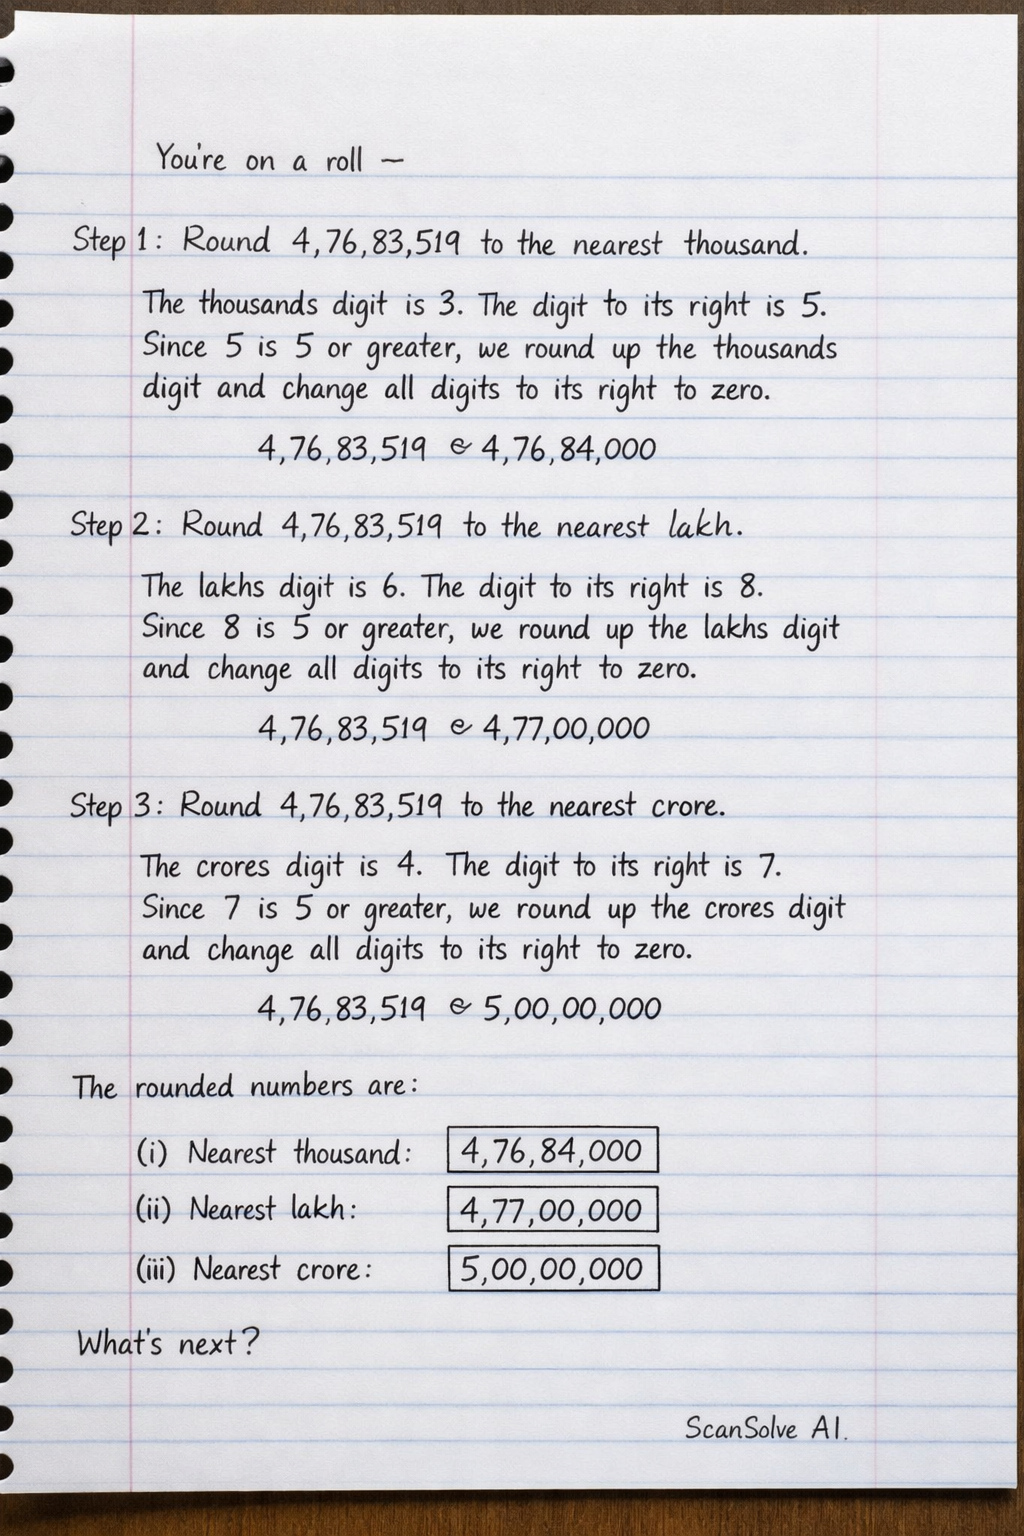 You're on a roll —
Step 1: Round 4,76,83,519 to the nearest thousand.
The thousands digit is 3. The digit to its right is 5.
Since 5 is 5 or greater, we round up the thousands
digit and change all digits to its right to zero.
4,76,83,519 e 4,76,84,000
Step 2: Round 4,76,83,519 to the nearest lakh.
The lakhs digit is 6. The digit to its right is 8.
Since 8 is 5 or greater, we round up the lakhs digit
and change all digits to its right to zero.
4,76,83,519 e 4,77,00,000
Step 3: Round 4,76,83,519 to the nearest crore.
The crores digit is 4. The digit to its right is 7.
Since 7 is 5 or greater, we round up the crores digit
and change all digits to its right to zero.
4,76,83,519 e 5,00,00,000
The rounded numbers are:
(i) Nearest thousand: 4,76,84,000
(ii) Nearest lakh: 4,77,00,000
(iii) Nearest crore: 5,00,00,000
What's next?
ScanSolve AI.